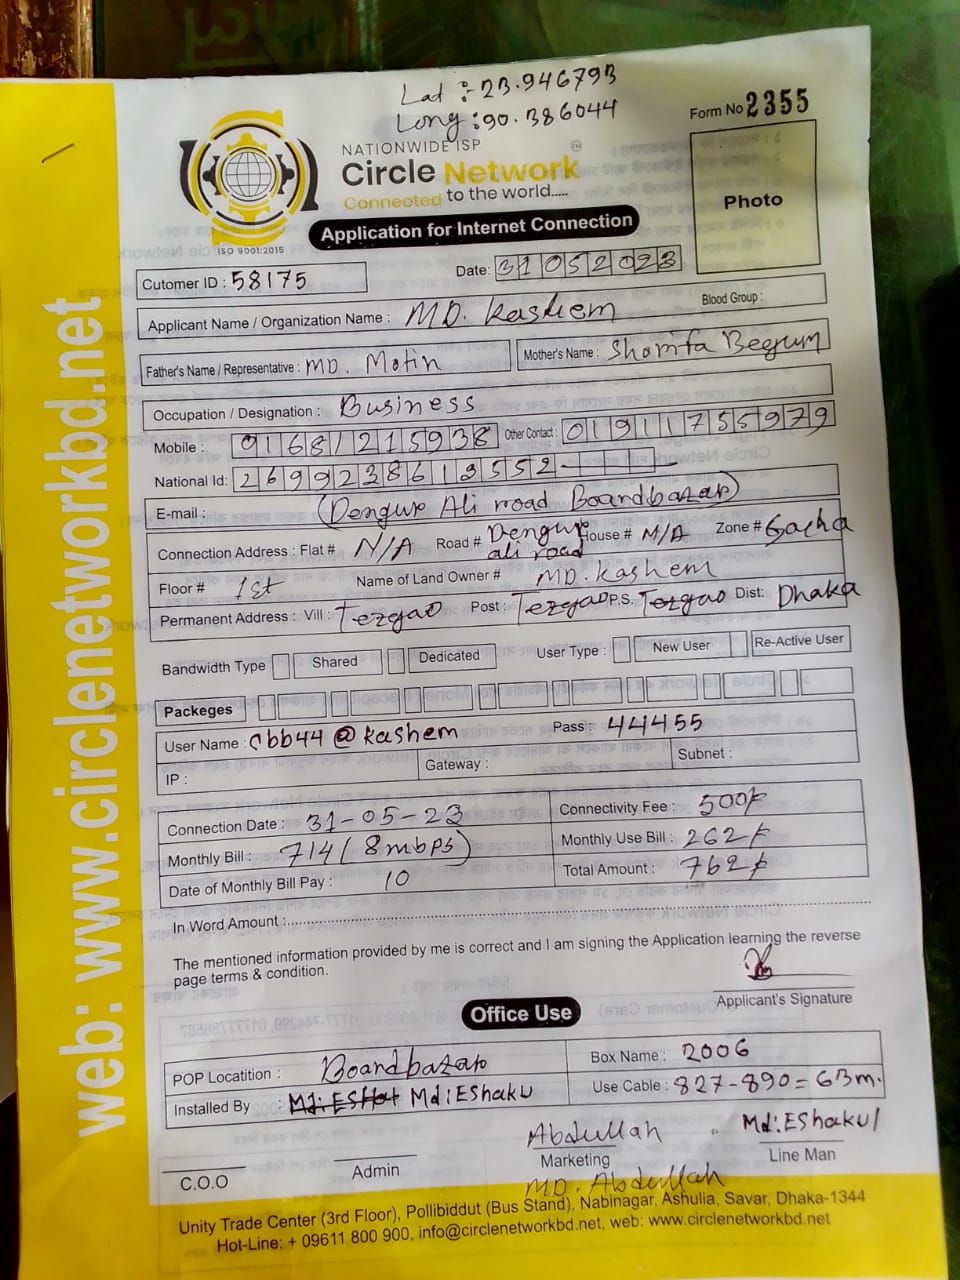 Lat :- 23.946793
Long : 90.386044
Form No 2355
NATIONWIDE ISP
Circle Network
Connected to the world.....
ISO 9001:2015
Photo
Application for Internet Connection
Cutomer ID : 58175
Date: 31052023
Applicant Name / Organization Name : MD. Kashem
Blood Group :
Father's Name / Representative : MD. Motin
Mother's Name : Shomfa Begum
Occupation / Designation : Business
Mobile : 01681215938 Other Contact : 01911755979
National Id: 2699238613552
E-mail : (Dengur Ali road Boardbazar)
Connection Address : Flat # N/A Road # Dengur ali road House # N/A Zone # Gacha
Floor # 1st Name of Land Owner # MD. Kashem
Permanent Address : Vill : Tezgao Post : Tezgao P.S. Tezgao Dist: Dhaka
Bandwidth Type Shared Dedicated User Type : New User Re-Active User
Packeges
User Name : cbb44@kashem Pass : 44455
IP : Gateway : Subnet :
Connection Date : 31-05-23 Connectivity Fee : 500/-
Monthly Bill : 714 (8mbps) Monthly Use Bill : 262/-
Date of Monthly Bill Pay : 10 Total Amount : 762/-
In Word Amount :
The mentioned information provided by me is correct and I am signing the Application learning the reverse
page terms & condition.
Applicant's Signature
Office Use
POP Locatition : Boardbazar Box Name : 2006
Installed By : Md: EShaku Use Cable : 827-890 = 63m.
Abdullah Md: EShakul
C.O.O Admin Marketing Line Man
MD. Abdullah
Unity Trade Center (3rd Floor), Pollibiddut (Bus Stand), Nabinagar, Ashulia, Savar, Dhaka-1344
Hot-Line: + 09611 800 900, info@circlenetworkbd.net, web: www.circlenetworkbd.net
web: www.circlenetworkbd.net